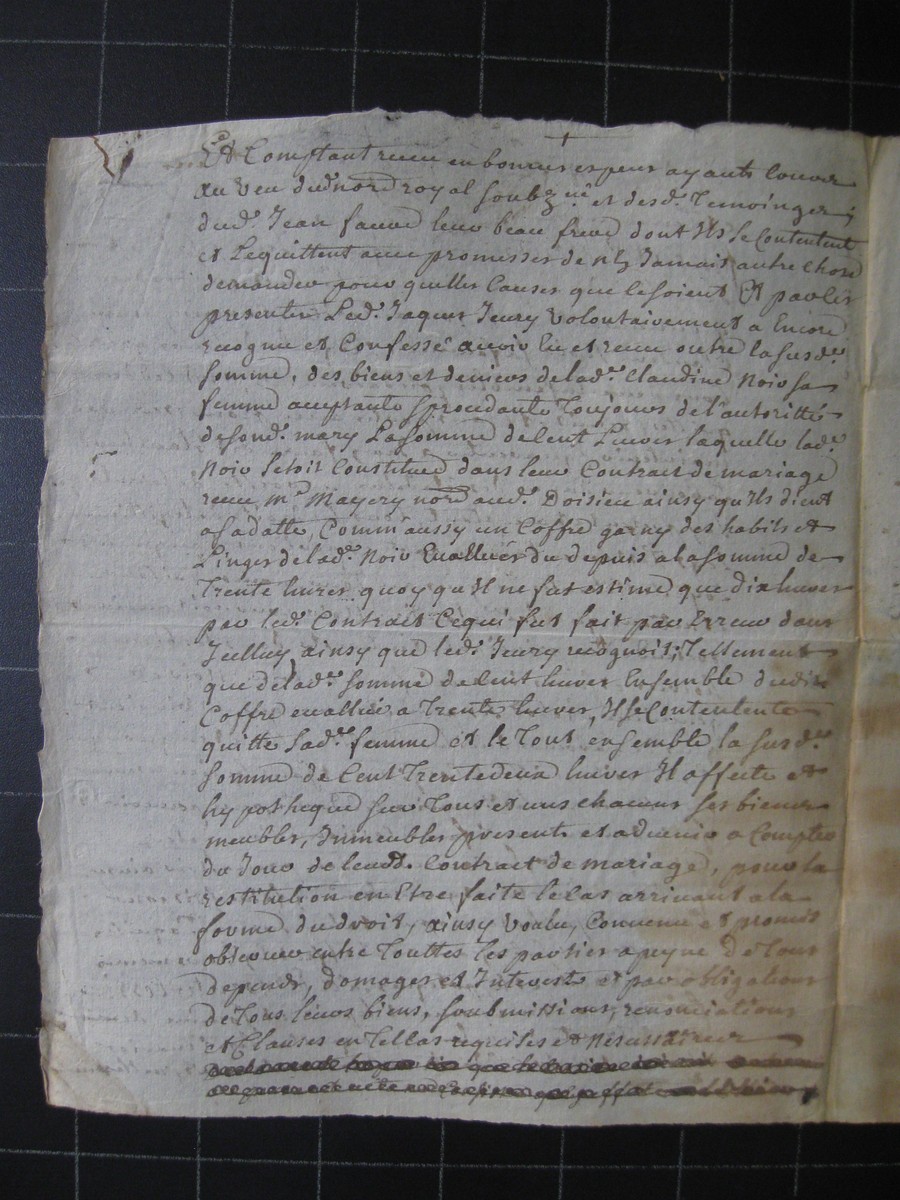 Et Comptant receu en bonnes especes ayants cours
au veu dud. no.re royal soubz.né et desd. Temoinges;
dud. Jean faure leur beau frere dont Ils se Contentent
et Lequittent avec promesses de nly Jamais autre chose
demander pour quelles Causes que le soient Et par les
presentes Led. Jaques Jeury volontairement a Encore
recognu et Confessé avoir Eu et receu outre la susd.e
somme, des biens et deniers delad.e Claudine Noir sa
femme acceptante proceedante Toujours de l'autoritté
desond. mary La somme de Cent Livres laquelle lad.e
Noir setoit Constituée dans leur Contrat de mariage
receu m.e Mayery nore aud. Doisieu ainsy qu'Ils dient
a sa datte, Comm'aussy un Coffre garny des habits et
Linges delad.e Noir Evallués du depuis a la somme de
Trente livres quoy qu'Il ne fut estimé que dix livres
par led. Contrat Cequi fut fait par Erreur dans
Jcelluy, ainsy que led. Jeury recognoit; Tellement
que delad.e somme de Cent livres Ensemble dudit
Coffre evallué a Trente livres, Il se Contentente
quitte sad.e femme et le Tout ensemble la susd.e
somme de Cent Trente deux livres Il affecte et
hypotheque sur Tous et uns chacuns ses biens
meubles, Immeubles presents et advenir a Compter
du Jour de leurd. Contrat de mariage, pour la
restitution en Etre faite le Cas arrivant a la
forme du droit, ainsy voulu, Convenu et promis
observer entre Touttes les parties a peyne De Tous
depends, domages et Interests et par obligations
de Tous leurs biens, soubmissions, renonciations
et Clauses en Tel Cas requises et Nesessaires